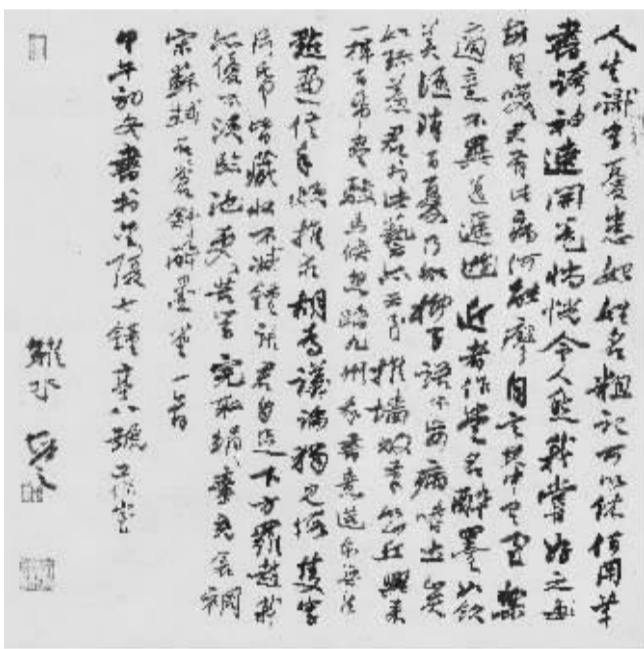 人生識字憂患始姓名粗記可以休何用草
書誇神速開卷惝怳令人愁我嘗好之每
自笑君有此病何能瘳自言其中有至樂
適意不異逍遙遊近者作堂名醉墨如飲
美酒消百憂乃知柳子語不妄病嗜土炭
如珍羞君於此藝亦云至堆墻敗筆如山丘興來
一揮百紙盡駿馬倏忽踏九州我書意造本無法
點畫信手煩推求胡為議論獨見假隻字
片紙皆藏收不減鍾張君自足下方羅趙我
亦優不須臨池更苦學完取絹素充衾裯
宋蘇軾石蒼舒醉墨堂一首
甲午初冬書於金陵七鍾亭八號工作室